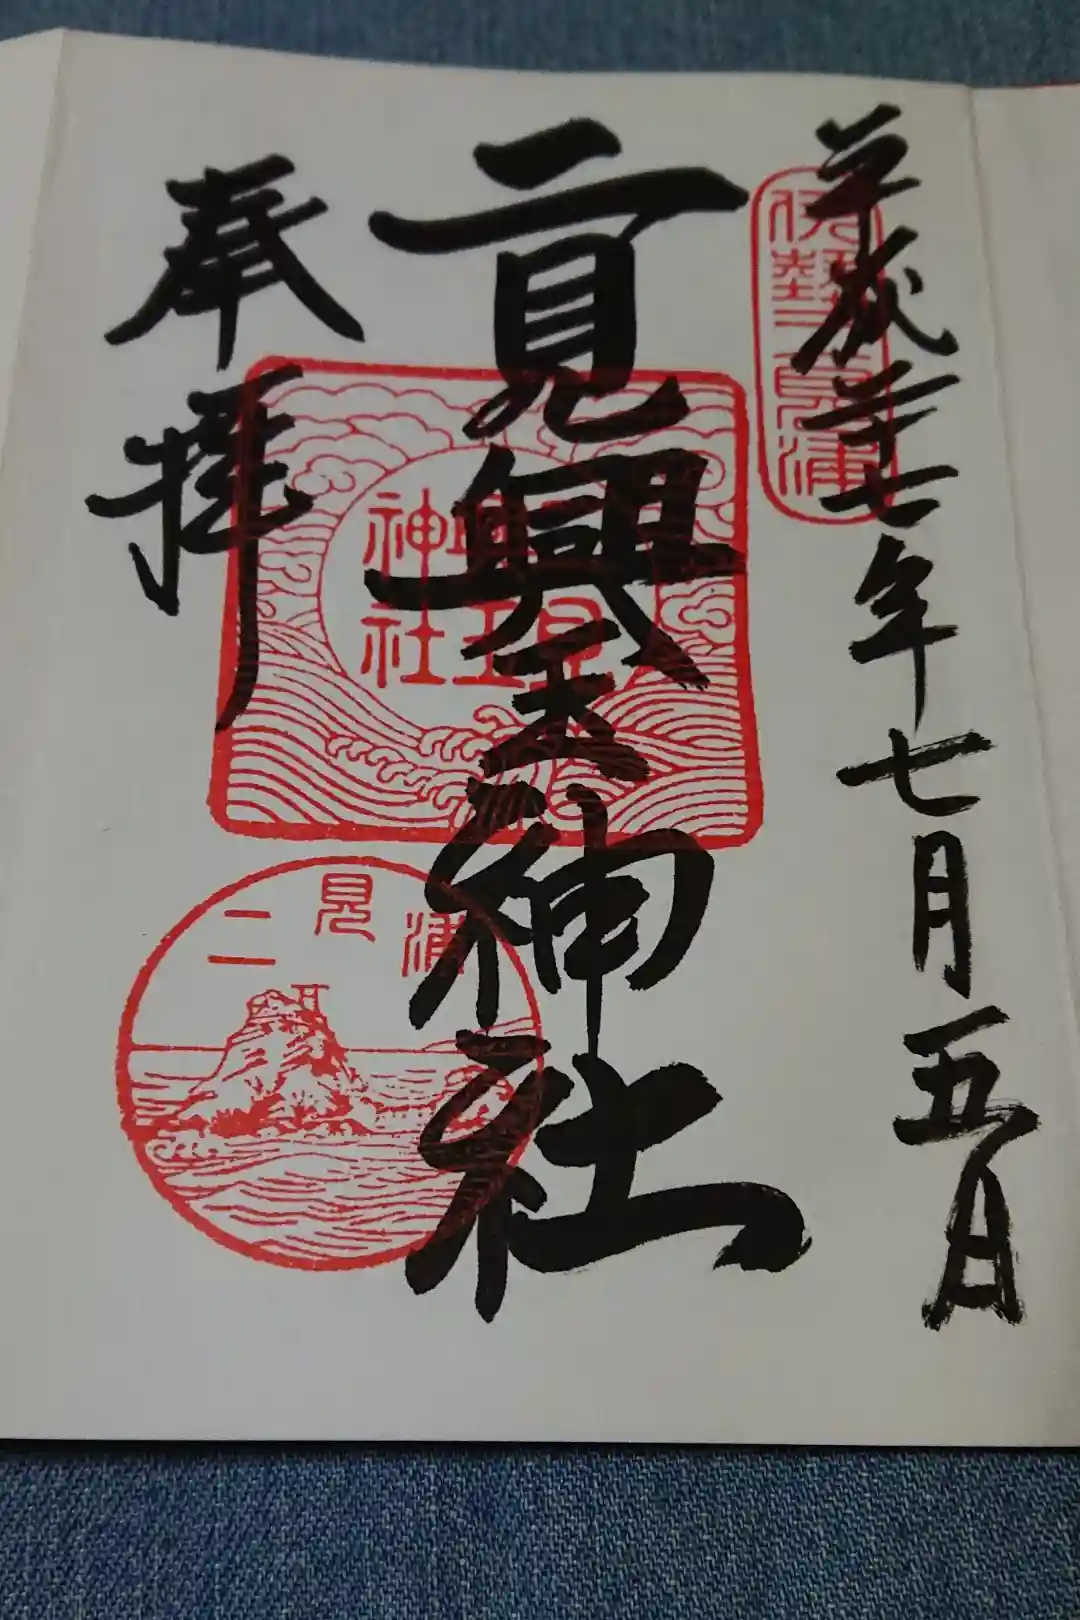 平成二十七年七月五日
伊勢二見浦
二見興玉神社
二見
興玉
神社
奉拝
二見浦